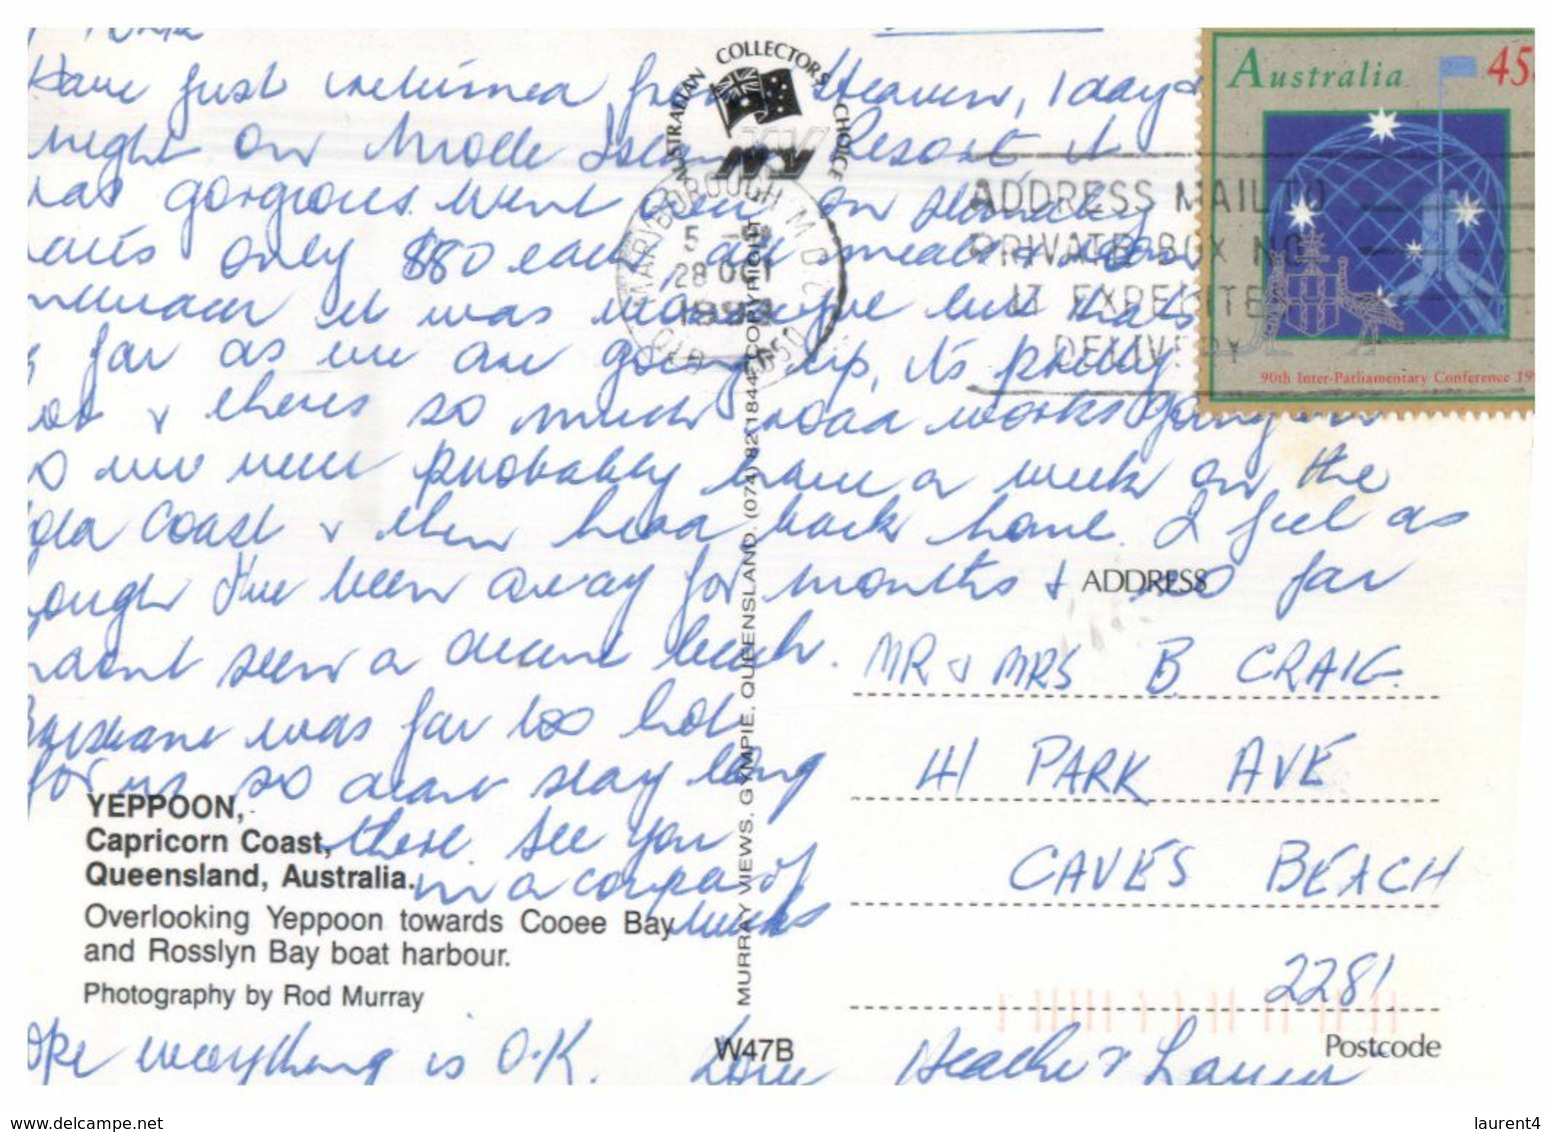 Have just returned from Heaven, 1 day &
night on Molle Island Resort it
was gorgeous. Went over on standby
rates only $80 each, all meals &
it was but that's
far as we are going up, it's pretty
hot & theres so much road works going on
so we will probably have a week on the
Gold Coast & then head back home. I feel as
though I've been away for months & so far
hadent seen a decent beach.
Brisbane was far too hot
for us so dident stay long
there. See you
in a coupla of
weeks
Hope everything is O.K. Love Heather & Laurie
AUSTRALIAN COLLECTORS CHOICE
MARYBOROUGH M.D.C.
5 -
28 OCT
1993
QLD
ADDRESS MAIL TO
PRIVATE BOX NO
IT EXPEDITES
DELIVERY
Australia 45c
90th Inter-Parliamentary Conference 19
MURRAY VIEWS, GYMPIE, QUEENSLAND. (074) 821844 COPYRIGHT
ADDRESS
MR & MRS B. CRAIG.
41 PARK AVE
CAVES BEACH
2281
Postcode
YEPPOON,
Capricorn Coast,
Queensland, Australia.
Overlooking Yeppoon towards Cooee Bay
and Rosslyn Bay boat harbour.
Photography by Rod Murray
W47B
www.delcampe.net
laurent4